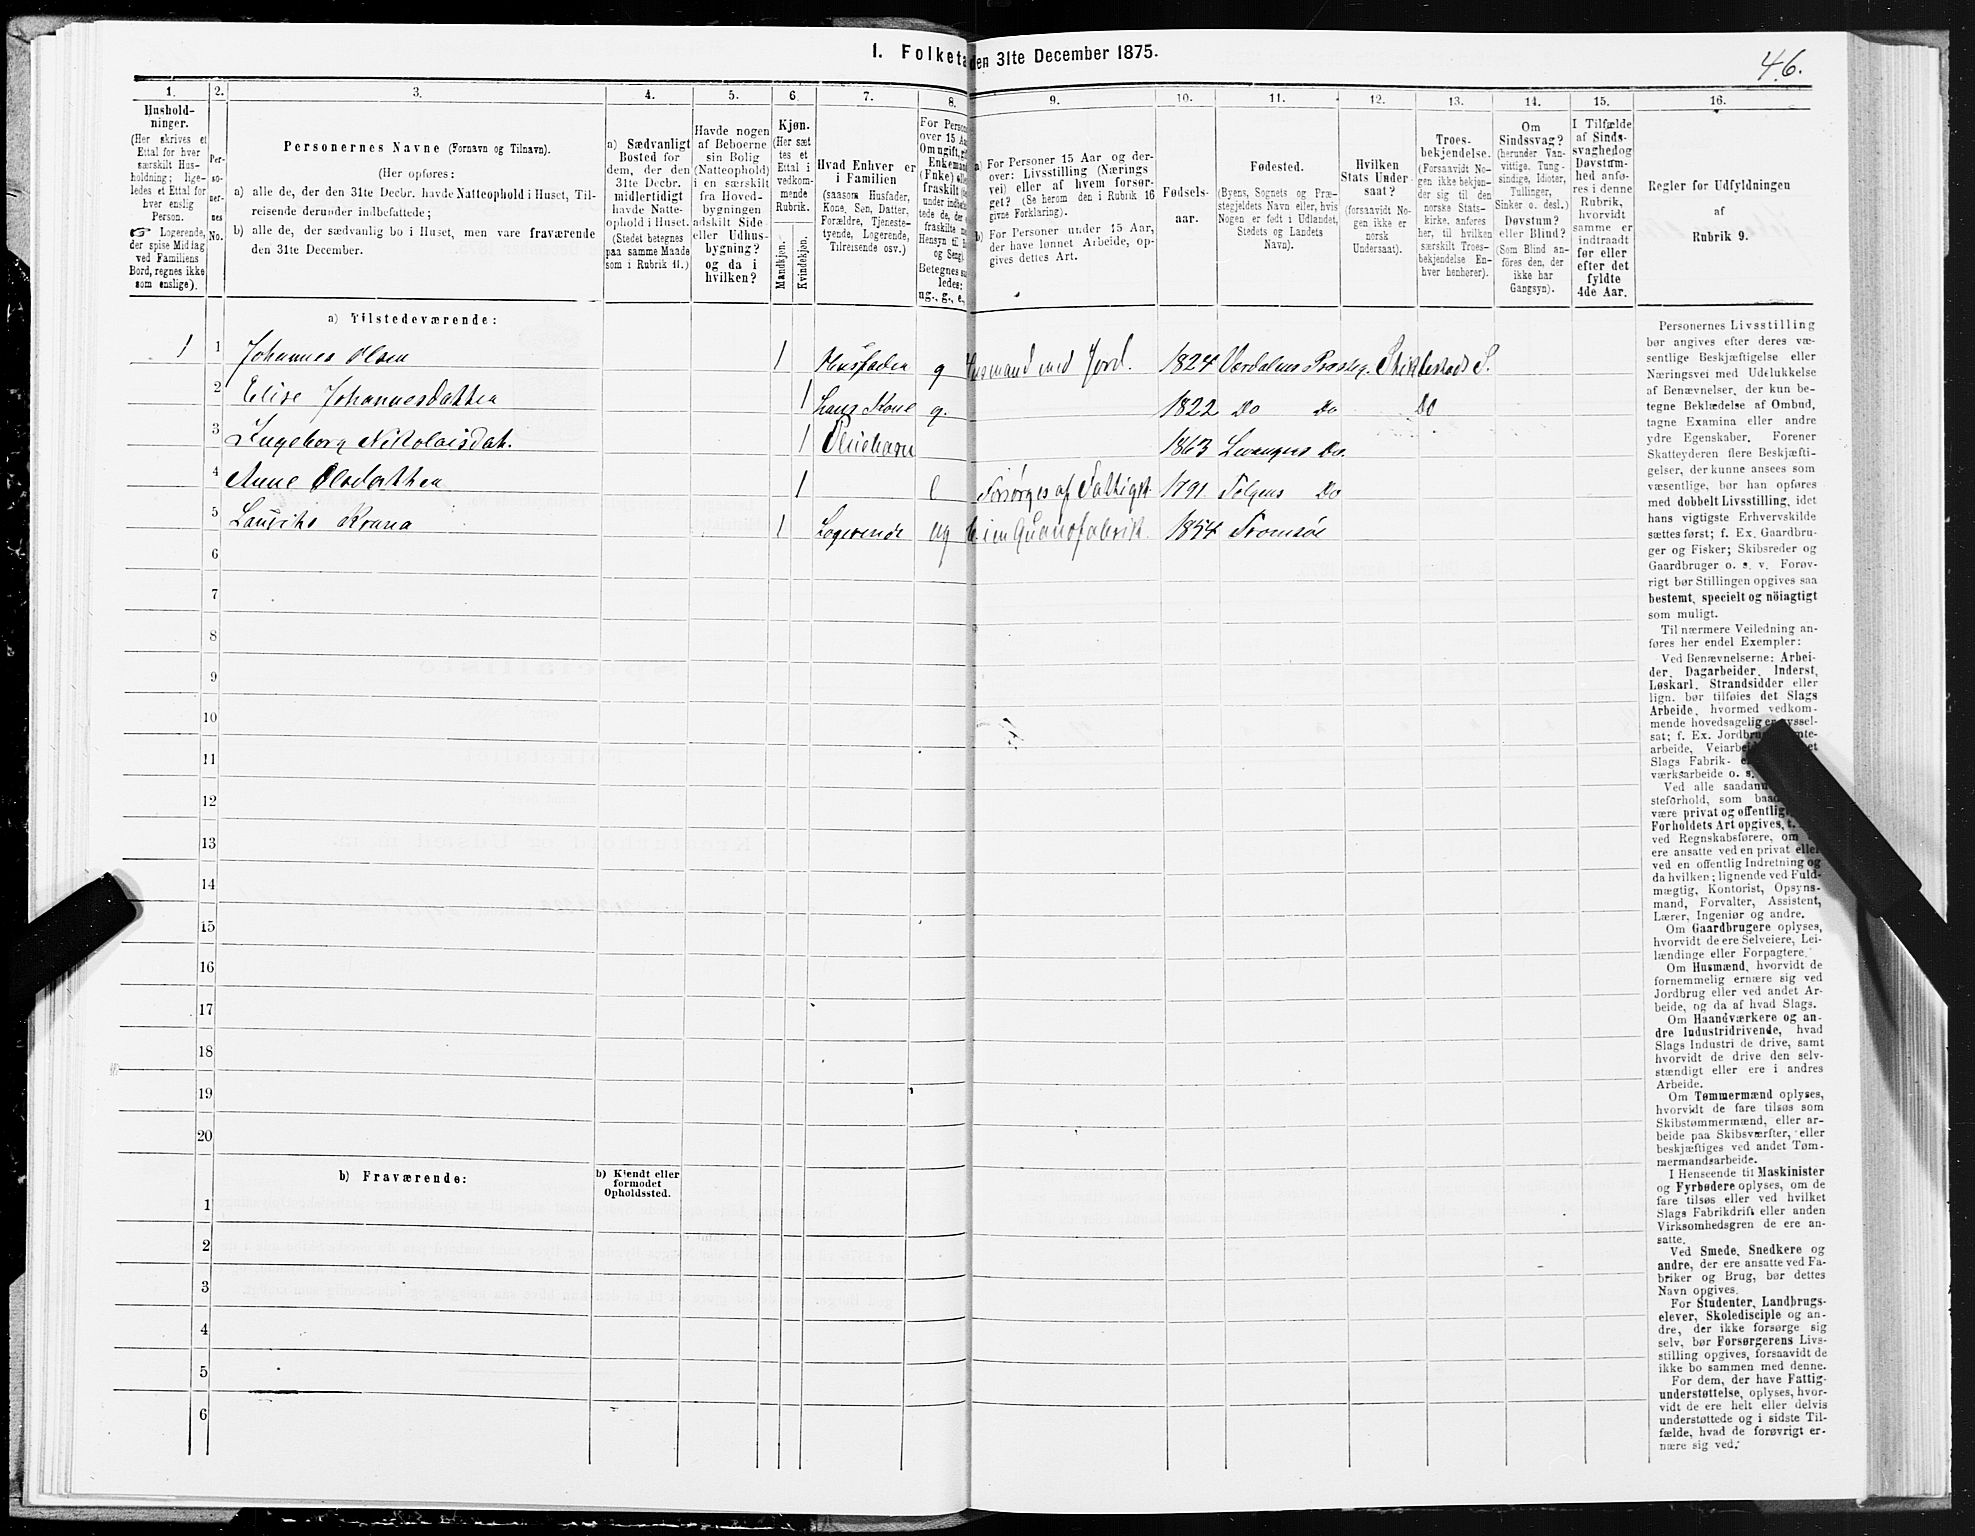 I. Folketa den 31te December 1875.
46.
1. 2. 3. 4. 5. 6. 7. 8. 9. 10. 11. 12. 13. 14. 15. 16.
Hushold-
ninger.
(Her skrives et
Ettal for hver
særskilt Hus-
holdning; lige-
ledes et Ettal for
hver enslig
Person.
☞ Logerende,
der spise Middag
ved Familiens
Bord, regnes ikke
som enslige).
Per-
so-
ner-
nes
No.
Personernes Navne (Fornavn og Tilnavn).
(Her opføres:
a) alle de, der den 31te Decbr. havde Natteophold i Huset, Til-
reisende derunder indbefattede;
b) alle de, der sædvanlig bo i Huset, men vare fraværende
den 31te December.
a) Sædvanligt
Bosted for
dem, der den
31te Decbr.
midlertidigt
havde Natte-
ophold i Huset.
(Stedet betegnes
paa samme Maade
som i Rubrik 11.)
Havde nogen
af Beboerne
sin Bolig
(Natteophold)
i en særskilt
fra Hoved-
bygningen
adskilt Side-
eller Udhus-
bygning?
og da i
hvilken?
Kjøn.
(Her sæt
tes et
Ettal i
vedkom-
mende
Rubrik.
Mandkjøn.
Kvindekjøn.
Hvad Enhver er
i Familien
(saasom Husfader,
Kone, Søn, Datter,
Forældre, Tjeneste-
tyende, Logerende,
Tilreisende osv.)
For Person
over 15 Aa
Om ugift, gi
Enkeman
(Enke) e
fraskilt
under indbe
tede de, der
fraskilte
Hensyn til B
og Seng).
Betegnes sa
ledes:
ug., g., e.,
a) For Personer 15 Aar og der-
over: Livsstilling (Nærings
vei) eller af hvem forsør-
get? (Se herom den i Rubrik 16
givne Forklaring).
b) For Personer under 15 Aar,
der have lønnet Arbeide, op-
gives dettes Art.
Fødsels-
aar.
Fødested.
(Byens, Sognets og Præ-
stegjeldets Navn eller, hvis
Nogen er født i Udlandet,
Stedets og Landets
Navn).
Hvilken
Stats Under-
saat?
(forsaavidt No-
gen ikke er
norsk
Undersaat).
Troes-
bekjendelse.
(Forsaavidt No-
gen ikke bekjen-
der sig til den
norske Stats-
kirke, anføres
her, til hvilken
særskilt Troes-
bekjendelse En-
hver henhører).
Om
Sindssvag?
(herunder Van-
vittige, Tung-
sindige, Idioter,
Tullinger,
Sinker o. desl.)
Døvstum?
eller Blind?
(Som Blind an-
føres den, der
ikke har
Gangsyn).
I Tilfælde
af Sinds-
svaghed og
Døvstum-
hed anfø-
res i denne
Rubrik,
hvorvidt
samme er
indtraadt
før eller
efter det
fyldte
4de Aar.
Regler for Udfyldningen
af
Rubrik 9.
a) Tilstedeværende:
1 1 Johannes Olsen 1 Husfader g Husmand med Jord. 1824 Værdalens Præsteg. Stiklestads S.
2 Elise Johannesdatter 1 hans Kone g. 1822 Do Do Do
3 Ingeborg Nikolaisdat. 1 Pleiebarn 1863 Levangers Do.
4 Anne Olsdatter 1 e Forsørges af Fattigk. 1791. Tolgens Do
5 Lauritz Krana 1 Logerende ug i en Guanofabrik. 1854 Tromsøe
6
7
8
9
10
11
12
13
14
15
16
17
18
19
20
b) Fraværende:
b) Kjendt eller
formodet
Opholdssted.
1
2
3
4
5
6
Personernes Livsstilling
bør angives efter deres væ-
sentlige Beskjæftigelse eller
Næringsvei med Udelukkelse
af Benævnelser, der kun be-
tegne Beklædelse af Ombud,
tagne Examina eller andre
ydre Egenskaber. Forener
Skatteyderen flere Beskjæfti-
gelser, der kunne ansees som
væsentlige, bør han opføres
med dobbelt Livsstilling, idet
hans vigtigste Erhvervskilde
sættes først; f. Ex. Gaardbru-
ger og Fisker; Skibsreder og
Gaardbruger o. s. v. Forøv-
rigt bør Stillingen opgives saa
bestemt, specielt og nöiagtigt
som muligt.
Til nærmere Veiledning an-
føres her endel Exempler:
Ved Benævnelserne: Arbei-
der, Dagarbeider, Inderst,
Løskarl, Strandsidder eller
lign. bør tilføies det Slags
Arbeide, hvormed vedkom-
mende hovedsagelig er syssel-
sat; f. Ex. Jordbru mte-
arbeide, Veiarbei et
Slags Fabrik-
værksarbeide o. s.
Ved alle saadan
steforhold, som baa
være privat og offentlig
Forholdets Art opgives, t.
ved Regnskabsførere, om
ere ansatte ved en privat eller
ved en offentlig Indretning og
da hvilken; lignende ved Fuld-
mægtig, Kontorist, Opsyns-
mand, Forvalter, Assistent,
Lærer, Ingeniør og andre.
Om Gaardbrugere oplyses,
hvorvidt de ere Selveiere, Lei-
lændinge eller Forpagtere.
Om Husmænd, hvorvidt de
fornemmelig ernære sig ved
Jordbrug eller ved andet Ar-
beide, og da af hvad Slags.
Om Haandværkere og an-
dre Industridrivende, hvad
Slags Industri de drive, samt
hvorvidt de drive den selv-
stændigt eller ere i andres
Arbeide.
Om Tømmermænd oplyses,
hvorvidt de fare tilsøs som
Skibstømmermænd, eller ar-
beide paa Skibsværfter, eller
beskjæftiges ved andet Tøm-
mermandsarbeide.
I Henseende til Maskinister
og Fyrbødere oplyses, om de
fare tilsøs eller ved hvilket
Slags Fabrikdrift eller anden
Virksomhedsgren de ere an-
satte.
Ved Smede, Snedkere og
andre, der ere ansatte ved Fa-
briker og Brug, bør dettes
Navn opgives.
For Studenter, Landbrugs-
elever, Skoledisciple og an-
dre, der ikke forsørge sig
selv, bør Forsørgerens Livs-
stilling opgives, forsaavidt de
ikke bo sammen med denne.
For dem, der have Fattig-
understøttelse, oplyses, hvor-
vidt de ere helt eller delvis
understøttede og i sidste Til-
fælde, hvad de forøvrigt er-
nære sig ved.